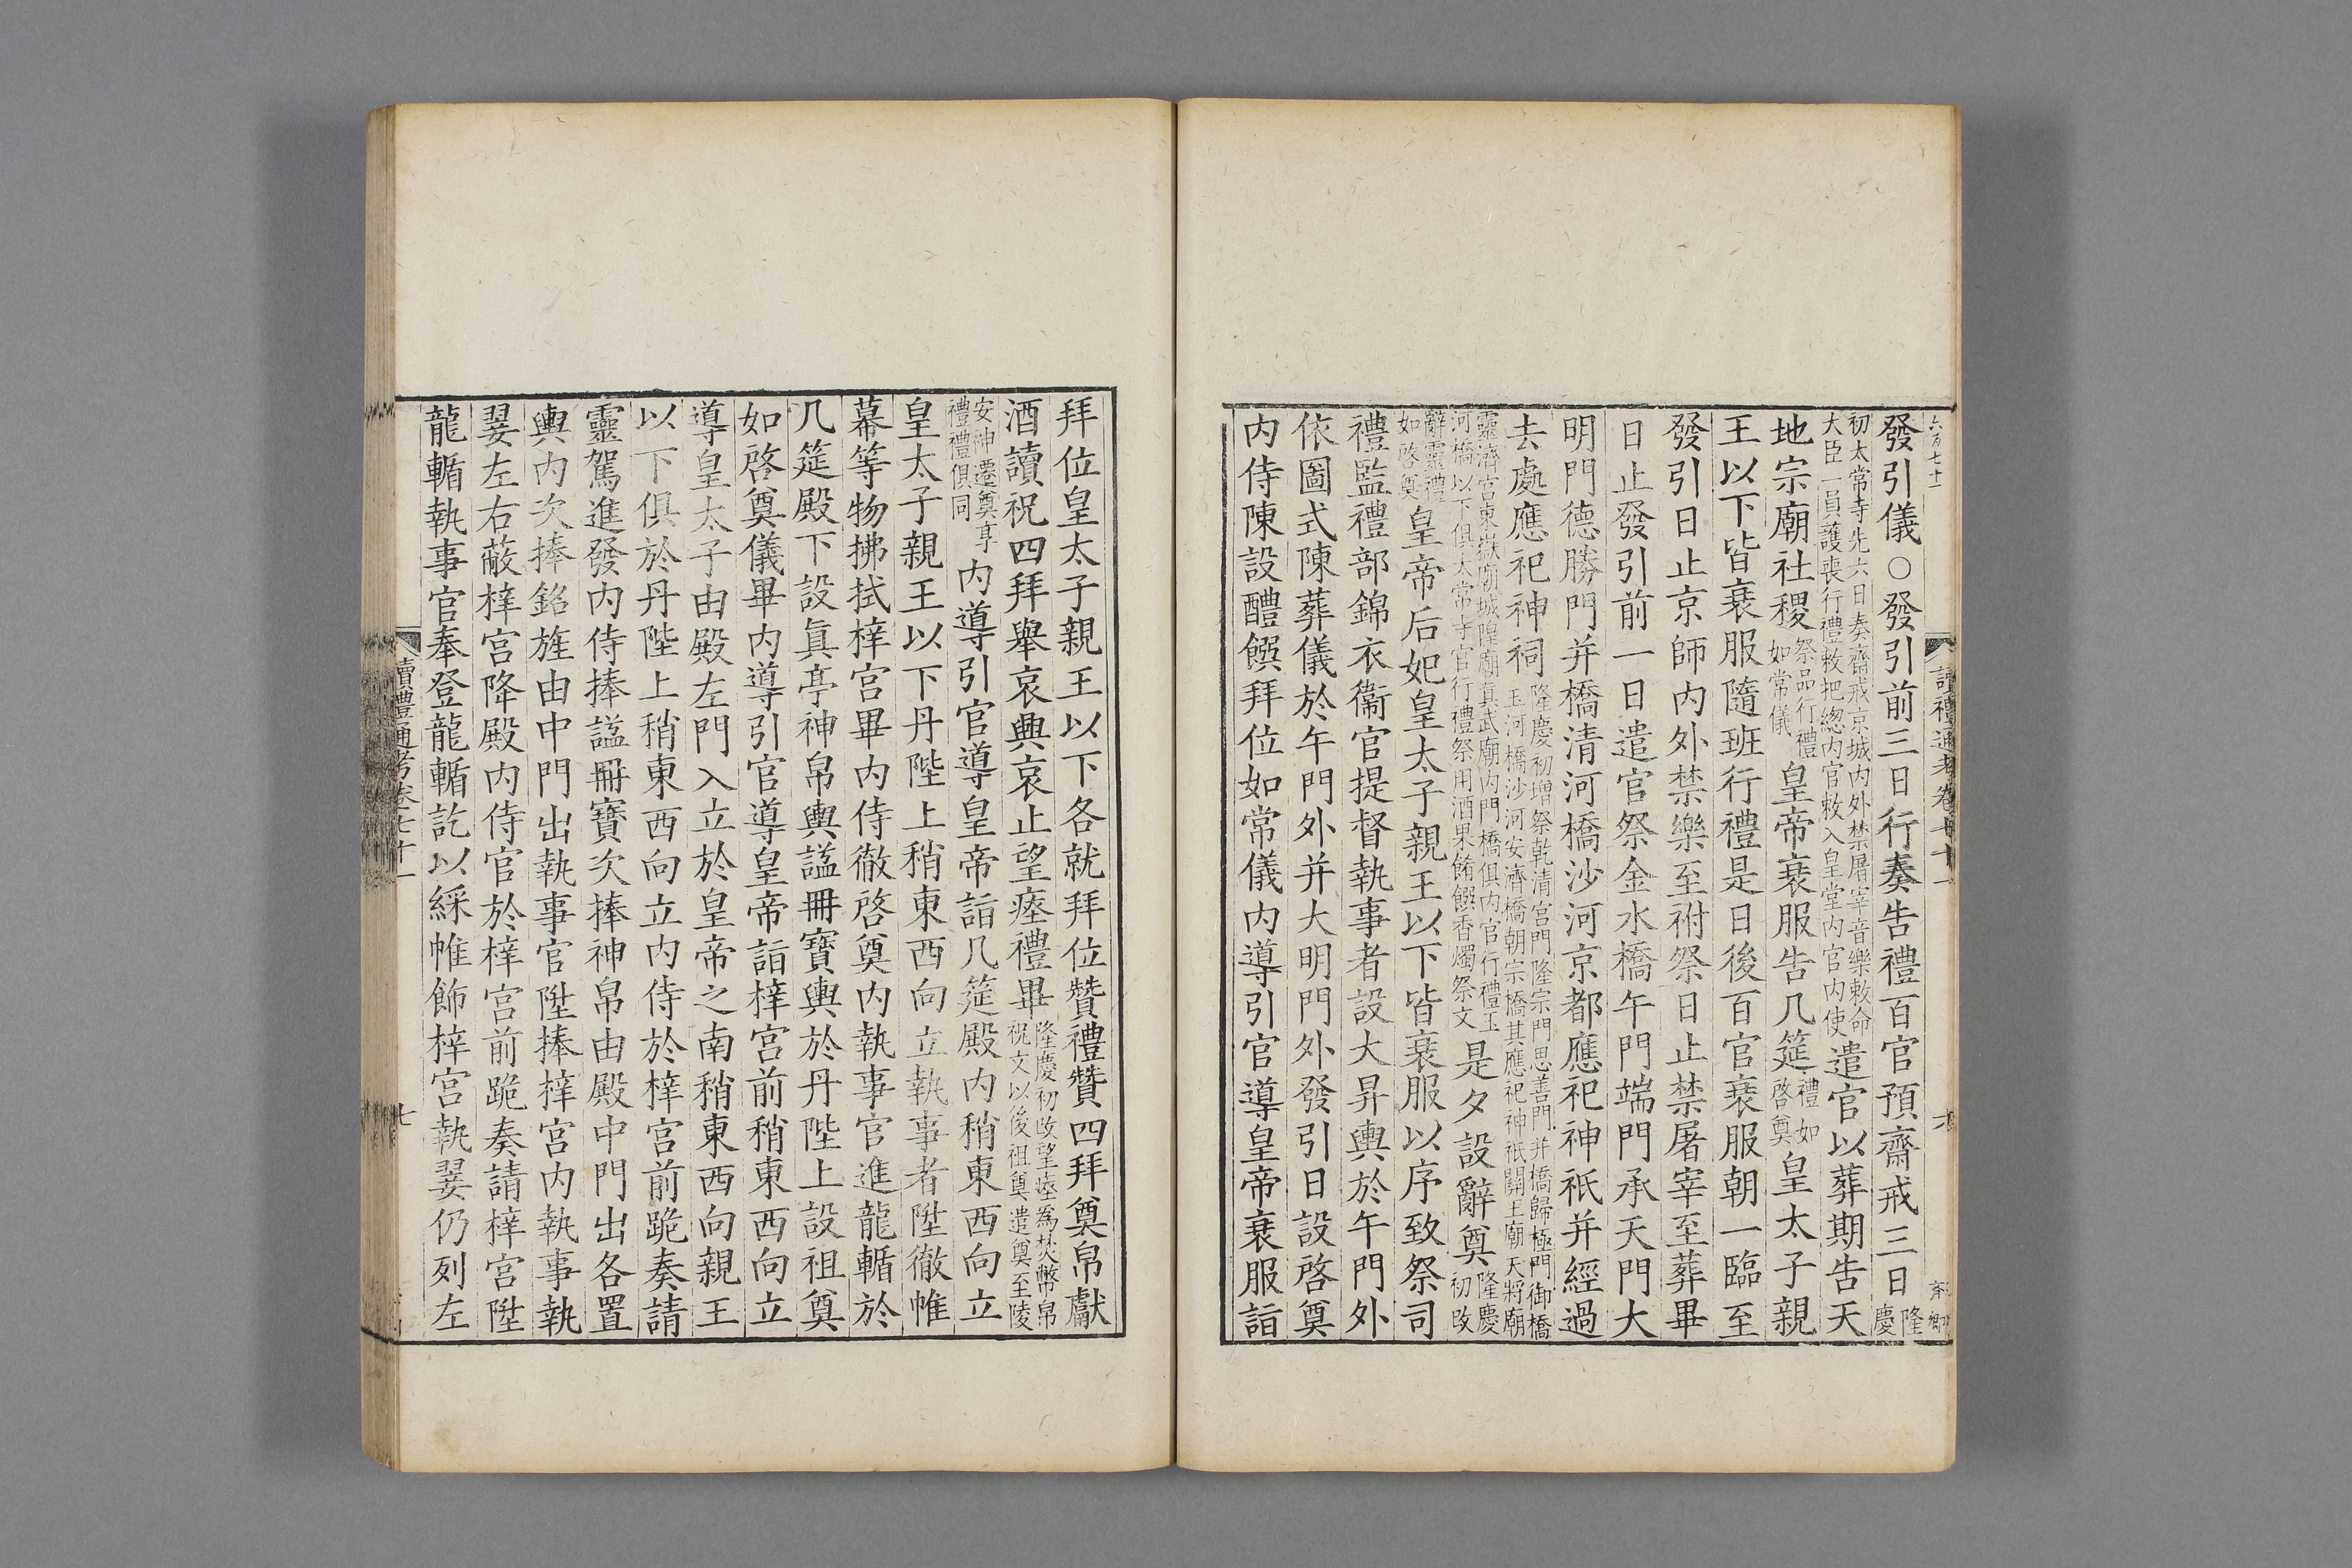 發引儀○發引前三日行奏告禮百官預齋戒三日隆慶
初太常寺先六日奏齋戒京城内外禁屠宰音樂敕命大臣一員護喪行禮敕把總内官敕入皇堂内官内使遣官以葬期告天
地宗廟社稷祭品行禮如常儀皇帝衰服告几筵禮如啓奠皇太子親
王以下皆衰服隨班行禮是日後百官衰服朝一臨至
發引日止京師内外禁樂至祔祭日止禁屠宰至葬畢
日止發引前一日遣官祭金水橋午門端門承天門大
明門德勝門并橋清河橋沙河京都應祀神祇并經過
去處應祀神祠隆慶初增祭乾清宫門隆宗門思善門并橋歸極門御橋玉河橋沙河安濟橋朝宗橋其應祀神祇關王廟天將廟
靈濟宫東嶽廟城隍廟真武廟内門橋俱内官行禮玉河橋以下俱太常寺官行禮祭用酒果餚饌香燭祭文是夕設辭奠隆慶初改
辭靈禮如啓奠皇帝后妃皇太子親王以下皆衰服以序致祭司
禮監禮部錦衣衞官提督執事者設大昇輿於午門外
依圖式陳葬儀於午門外并大明門外發引日設啓奠
内侍陳設醴饌拜位如常儀内導引官導皇帝衰服詣
拜位皇太子親王以下各就拜位贊禮贊四拜奠帛獻
酒讀祝四拜舉哀興哀止望瘞禮畢隆慶初改望瘞爲焚幣帛祝文以後祖奠遣奠至陵
安神遷奠享禮禮俱同内導引官導皇帝詣几筵殿内稍東西向立
皇太子親王以下丹陛上稍東西向立執事者陞徹帷
幕等物拂拭梓宫畢内侍徹啓奠内執事官進龍輴於
几筵殿下設真亭神帛輿謚冊寶輿於丹陛上設祖奠
如啓奠儀畢内導引官導皇帝詣梓宫前稍東西向立
導皇太子由殿左門入立於皇帝之南稍東西向親王
以下俱於丹陛上稍東西向立内侍於梓宫前跪奏請
靈駕進發内侍捧謚冊寶次捧神帛由殿中門出各置
輿内次捧銘旌由中門出執事官陞捧梓宫内執事執
翣左右蔽梓宫降殿内侍官於梓宫前跪奏請梓宫陞
龍輴執事官奉登龍輴訖以綵帷飾梓宫執翣仍列左
讀禮通考卷七十一
七